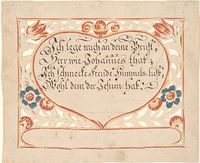 Ich lege mich an deine Brust,
Herr wie Johannes that,
Ich schmecke Freude Himmels lust,
Wohl dem der Jesum hat.